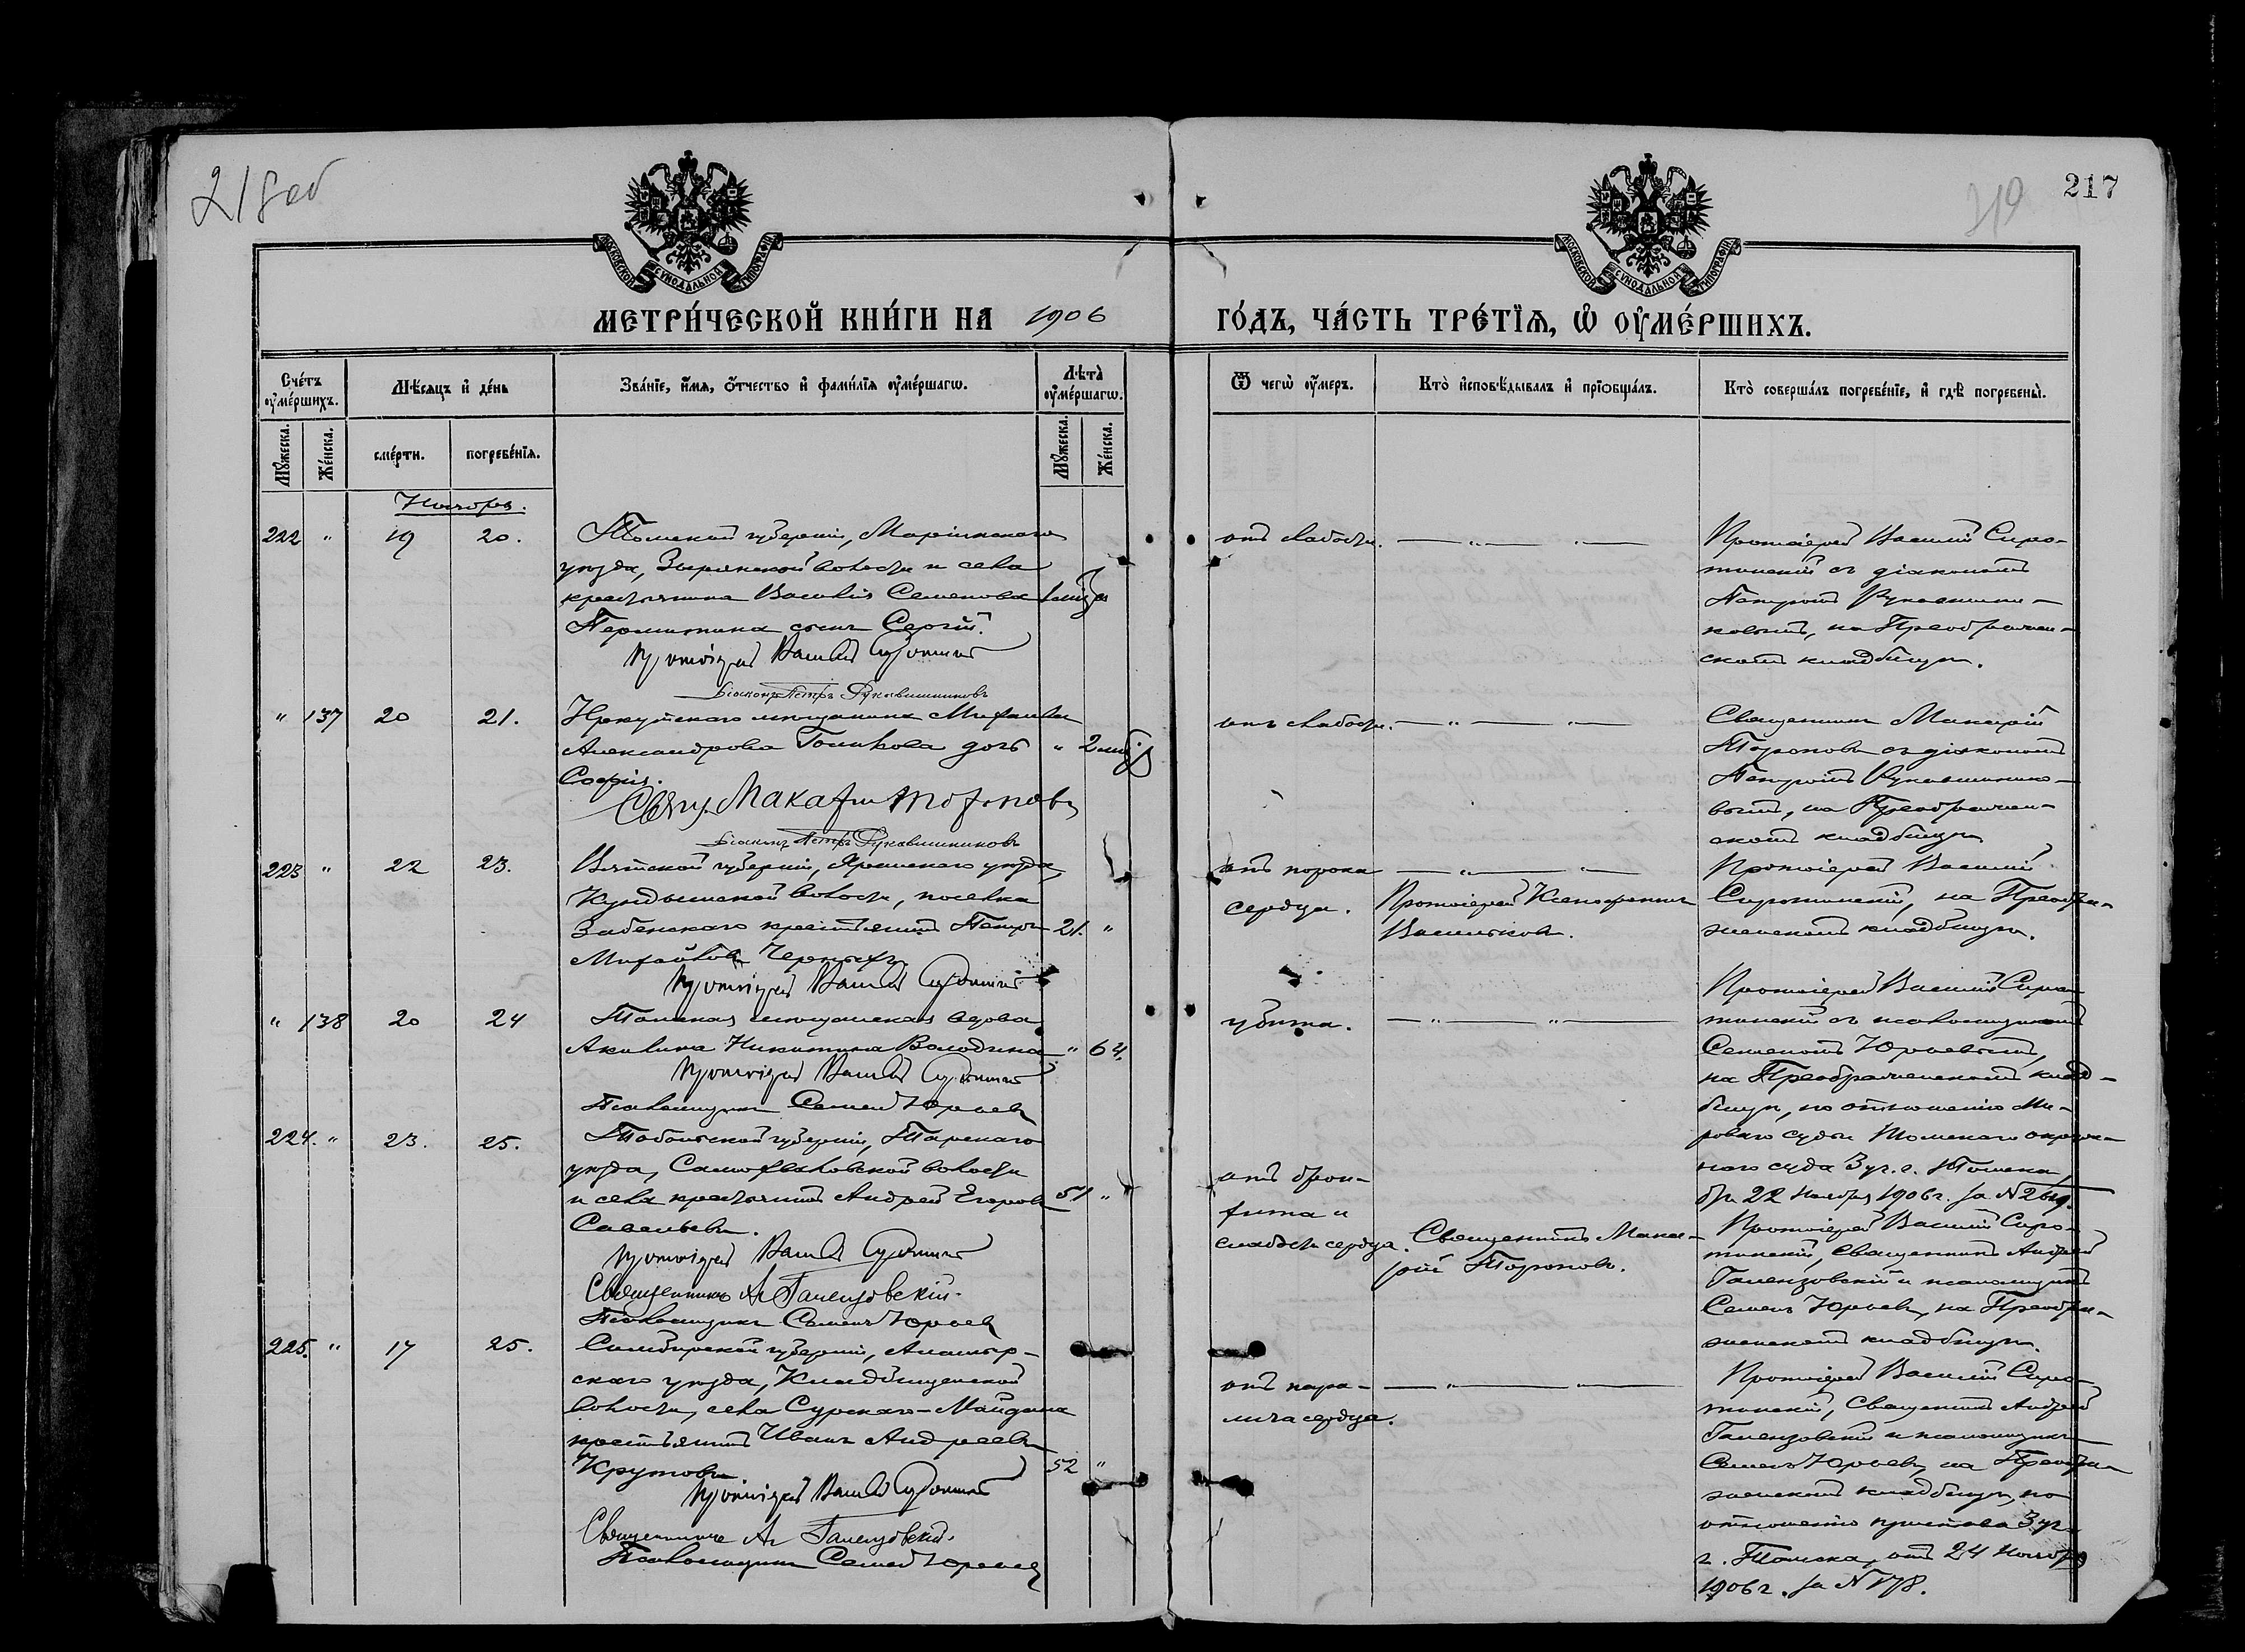 218 об
219
217
МОСКОВСКОЙ СѴНОДАЛЬНОЙ ТИПОГРАФІИ
МОСКОВСКОЙ СѴНОДАЛЬНОЙ ТИПОГРАФІИ
МЕТРИ́ЧЕСКОЙ КНИ́ГИ НА 1906
ГО́ДЪ, ЧА́СТЬ ТРЕ́ТІѦ, Ѽ ОУ҆МЕ́РШИХЪ.
Сче́тъ оу҆ме́ршихъ.
Мѣ́сѧцъ и҆ де́нь
Зва́нїе, и҆́мѧ, ѻ҆́тчество и҆ фами́лїѧ оу҆ме́ршагѡ.
Лѣ́та оу҆ме́ршагѡ.
Ѿ чегѡ̀ оу҆́меръ.
Кто̀ и҆сповѣ́дывалъ и҆ прїѻбща́лъ.
Кто̀ соверша́лъ погребе́нїе, и҆ гдѣ̀ погребены̀.
Мꙋ́жеска.
Же́нска.
сме́рти.
погребе́нїѧ.
Мꙋ́жеска.
Же́нска.
Ноябрь.
222 " 19 20.
Томской губерніи, Маріинскаго
уѣзда, Зырянской волости и села
крестьянина Василія Семенова
Пермитина сынъ Сергій.
Протоіерей Василій Сиротинскій
Діаконъ Петръ Рукавишниковъ
отъ слабости. — " — " —
Протоіерей Василій Сиро-
тинскій съ діакономъ
Петромъ Рукавишни-
ковымъ, на Преображен-
скомъ кладбищѣ.
" 137 20 21.
Иркутскаго мѣщанина Михаила
Александрова Голикова дочь " 2
Софія.
Свящ. Макарій Тороповъ
Діаконъ Петръ Рукавишниковъ
отъ слабости. — " — " —
Священникъ Макарій
Торопов съ діакономъ
Петромъ Рукавишнико-
вымъ, на Преображен-
скомъ кладбищѣ
223 " 22 23.
Вятской губерніи, Яранскаго уѣзда,
волости, поселка
крестьянинъ Петръ 21. "
Михайловъ Черныхъ.
Протоіерей Василій Сиротинскій
отъ порока — " — " —
сердца.
Протоіерей Ксенофонтъ
Васильковъ.
Протоіерей Василій
Сиротинскій, на Преобра-
женскомъ кладбищѣ.
" 138 20 24
Томская мѣщанская вдова
Акилина Никитина Володина " 64.
Протоіерей Василій Сиротинскій
Псаломщикъ Семенъ Юрьевъ
убита. — " — " —
Протоіерей Василій Сиро-
тинскій съ псаломщикомъ
Семеномъ Юрьевымъ,
на Преображенскомъ клад-
бищѣ, по отношенію Ми-
рового судьи Томскаго окруж-
наго суда 3 уч. г. Томска,
отъ 22 Ноября 1906 г. за №
224. " 23. 25.
Тобольской губерніи, Тарскаго
уѣзда, волости
и села крестьянинъ Андрей Егоровъ 51 "
Савельевъ.
Протоіерей Василій Сиротинскій
Священникъ Ал. Галензовскій.
Псаломщикъ Семенъ Юрьевъ
отъ брон-
хита и
слабости сердца.
Священникъ Мака-
рій Торопов.
Протоіерей Василій Сиро-
тинскій, Священникъ Андрей
Галензовскій и псаломщикъ
Семенъ Юрьевъ, на Преобра-
женскомъ кладбищѣ.
225. " 17 25.
Симбирской губерніи, Алатыр-
скаго уѣзда, Кладбищенской
волости, села Сурскаго-Майдана
крестьянинъ Иванъ Андреевъ
Крутовъ. 52 "
Протоіерей Василій Сиротинскій
Священникъ Ал. Галензовскій.
Псаломщикъ Семенъ Юрьевъ
отъ пара- — " — " —
лича сердца.
Протоіерей Василій Сиро-
тинскій, Священникъ Андрей
Галензовскій и псаломщикъ
Семенъ Юрьевъ, на Преобра-
женскомъ кладбищѣ, по
отношенію пристава 3 уч.
г. Томска, отъ 24 Ноября
1906 г. за № 178.